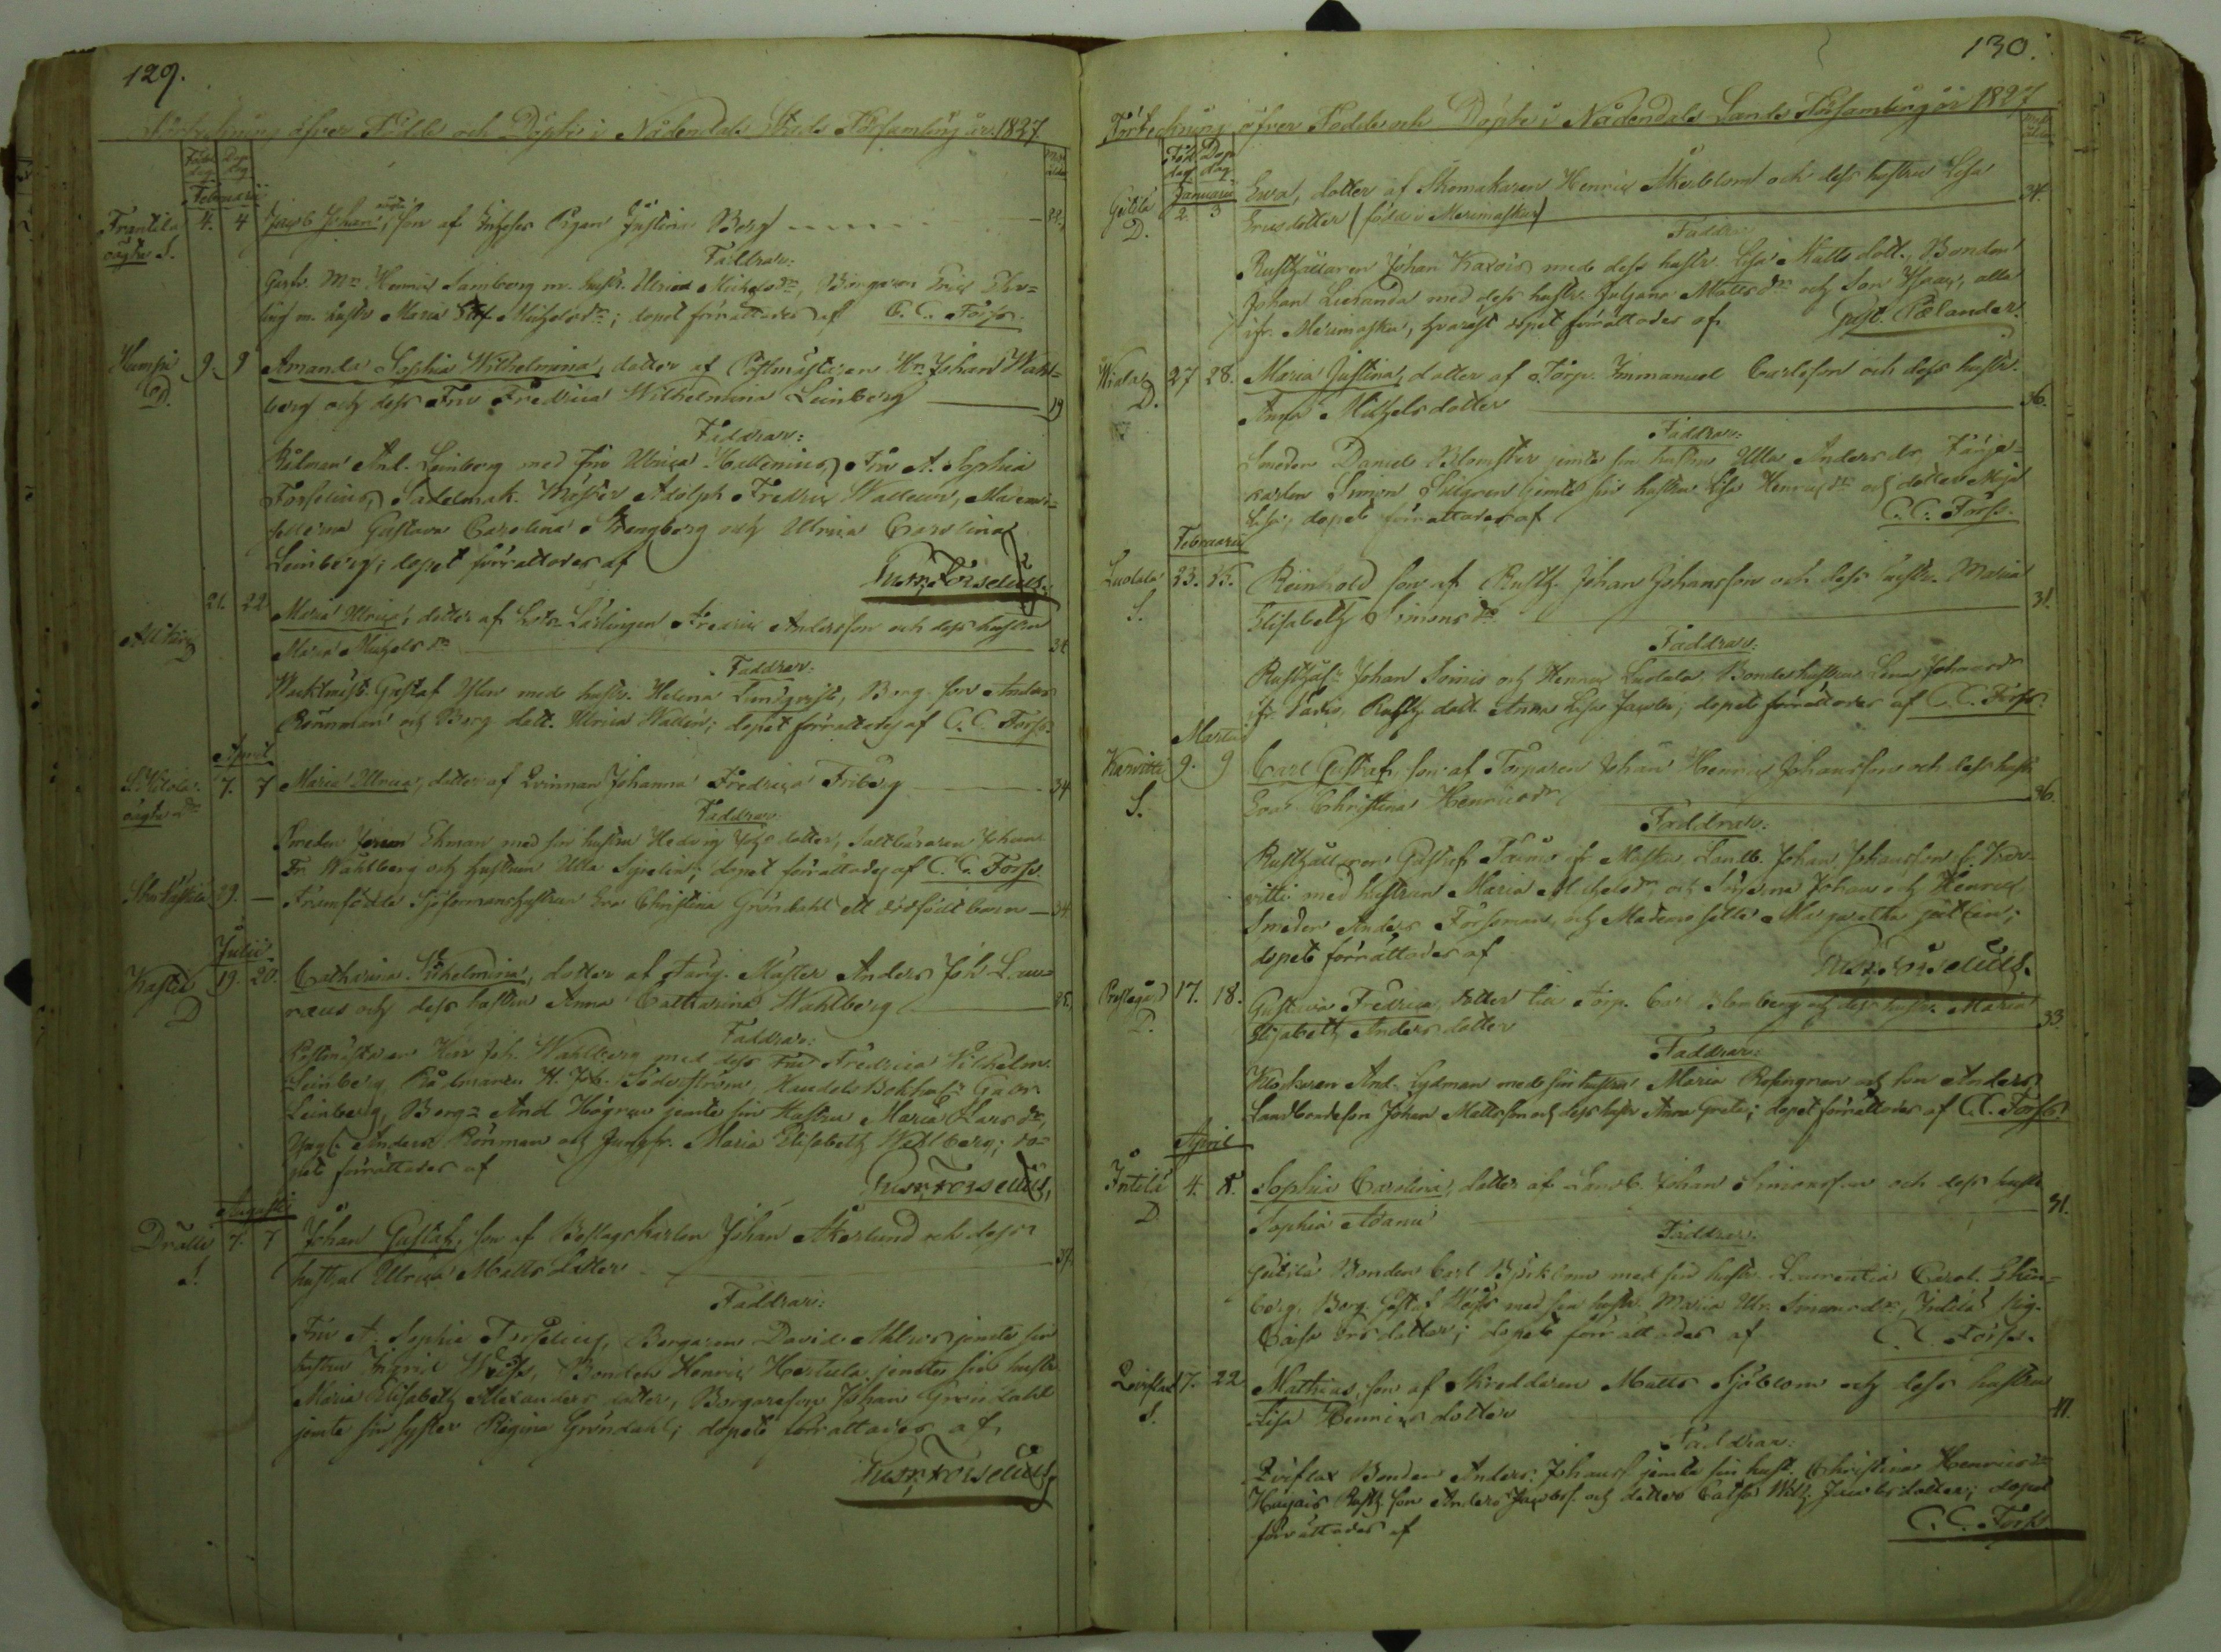 129.
Förteckning öfver Födde och Döpte i Nådendals Stads Församling år 1827
Födel. dag Dop dag
Februarii
Frantila oägta S. 4. 4 Jacob Johan, oägta son af Pigan Justina Berg 22.
Faddrar:
Garfv. Mr Henric Samberg m. hustr. Ulrica Michelsdr, Borgaren Eric
m. hustr Maria Michelsdr; dopet förrättades af C. C. Forss.
Humpi D. 9. 9 Amanda Sophia Wilhelmina, dotter af Postmästaren Hr. Johan Wahl=
berg och dess Fru Fredrica Wilhelmina Leinberg 29
Faddrar:
Rådman And. Leinberg med Fru Ulrica Hallenius, Fru A. Sophia
Forselius, Sadelmak. Mäster Adolph Fredric Wallenius, Mademoi=
sellerna Gustava Carolina Strengberg och Ulrica Carolina
Leinberg; dopet förrättades af
Gust. Forselius.
21. 22 Maria Ulrica, dotter af Lots Lärlingen Fredric Andersson och dess hustru
Maria Michelsdr 32
Faddrar:
Wacktmäst. Gustaf med hustr. Helena Lundqvist, Borg. son Anders
Rönnman och Borg. dott. Ulrica Wallen; dopet förrättades af C. C. Forss.
April
oägta Dr 7. 7 Maria Ulrica, dotter af Qvinnan Johanna Fredrica Friberg 34
Faddrar:
Smeden Ekman med sin hustru Hedvig dotter, Saltbäraren Johan
Fr. Wahlberg och hustrun Ulla Syrelin; dopet förrättades af C. C. Forss.
29. — Framfödde Sjöformanshustrun Eva Christina Gröndahl ett dödfödt barn — 34
Julii
Kastu D 19. 20. Catharina Wilhelmina, dotter af Färg. Mäster Anders Joh. Lau=
raeus och dess hustru Anna Catharina Wahlberg 25.
Faddrar:
Postmästaren Herr Joh. Wahlberg med dess Fru Fredrica Wilhelm.
Leinberg, Rådmannen H. Joh. Söderström, Handels Bokhål. Gabr.
Leinberg, Borg. And. Högren jemte sin Hustru Maria Larsdr,
Yngl. Anders Rönman och Jungfr. Maria Elisabeth Wahlberg; do=
pet förrättades af
Gust. Forselius.
Augusti
Drälli S. 7. 7 Johan Gustaf, son af Beslagskarlen Johan Åkerlund och dess
hustru Ulrica Matts Dotter 37.
Faddrar:
Fru A. Sophia Forselius, Borgaren David Ahlros jemte sin
hustru Ingrid Weiss, Bonden Henric Hertula jemte sin hustru
Maria Elisabeth Alexanders dotter, Borgareson Johan Gröndahl
jemte sin syster Regina Gröndahl; dopet förrättades af
Gust. Forselius
130.
Förteckning öfver Födde och Döpte i Nådendals Lands Församling år 1827
Föd. dag Dop dag
Januarii
D. 2. 3 Eva, dotter af Skomakaren Henric Åkerblom och dess hustru Lisa
Ericsdotter (född i Merimasku) 34.
Faddr.
Rusthållaren Johan Karvois med dess hustr. Lisa Matts dott., Bonden
Johan Luranda med dess hustr. Juliana Mattsdr och Son Isaac, alla
ifr. Merimasku, hvarest dopet förrättades af Past. Pælander.
Wiala D. 27 28. Maria Justina, dotter af Torp. Immanuel Carlsson och dess hustr.
Anna Michelsdotter 36.
Faddrar:
Smeden Daniel Blomster jemte sin hustru Ulla Andersdr, Färje=
karlen Simon Silgren jemte sin hustru Lisa Henricsdr och dotter Maja
Lisa; dopet förrättades af C. C. Forss.
Februarii
Luolala S. 23. 25. Reinhold son af Rusth. Johan Johansson och dess hustr. Maria
Elisabeth Simonsdr 31.
Faddrar:
Rusthål. Johan Soinis och Henric Luolala, Bondehustrun Lena Johansdr
ifr. Rusth. dott. Anna Lisa; dopet förrättades af C. C. Forss.
Martii
Karvitti S. 9. 9 Carl Gustaf, son af Torparen Johan Henric Johansson och dess hustr
Eva Christina Henricsdr 36.
Faddrar:
Rusthållaren Gustaf Tannis ifr. Masku, Landb. Johan Johansson fr. Kar=
vitti med hustrun Maria Michelsdr och Sönerna Johan och Henric,
Smeden Anders Forssman, och Mademoiselle Margaretha;
dopet förrättades af
Gust. Forselius.
Prostgård D. 17. 18. Gustava Fredrica, dotter till Torp. Carl Blomberg och dess hustr. Maria
Elisabeth Andersdotter 33.
Faddrar:
Klockaren And. Lydman med sin hustru Maria Rosengren och son Anders
Landbondeson Johan Mattsson och dess hustr Anna Greta; dopet förrättades af C. C. Forss.
April
Intila D 4. 8. Sophia Carolina, dotter af Landb. Johan Simonsson och dess hustr
Sophia Adami 31.
Faddrar:
Bonden Carl Björkbom med sin hustr. Laurentia Carol. Ehrn=
berg, Borg. Gustaf med sin hustr. Maria Ulr. Simonsdr, Intila pig.
Caisa dotter; dopet förrättades af C. C. Forss.
Lviflax S. 17. 22 Mathias, son af Skreddaren Matts Sjöblom och dess hustru
Lisa Henrics dotter 41.
Faddrar:
Qviflax Bonden Anders Johanss. jemte sin hust. Christina Henricsdr
Rusth. son Anders Jacobss. och dotter Caisa Wilh. Jacobsdotter; dopet
förrättades af C. C. Forss